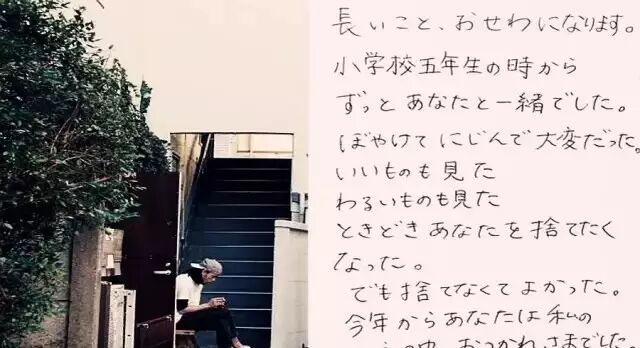 長いこと、おせわになります。
小学校五年生の時から
ずっとあなたと一緒でした。
ぼやけてにじんで大変だった。
いいものも見た
わるいものも見た
ときどきあなたを捨てたく
なった。
でも捨てなくてよかった。
今年からあなたは私の
の中、おつかれさまでした。